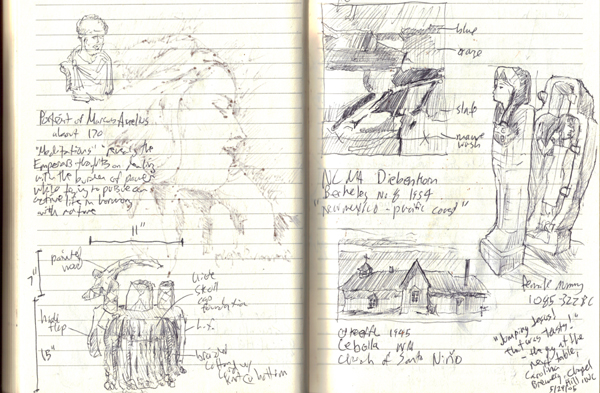 Portrait of Marcus Aurelius
about 170
"Meditations" reveals the
Emperor's thoughts on dealing
with the burden of power
while trying to pursue
life in harmony
with nature
11"
7"
15"
painted
wood
hide
flap
hide
skull
cap
braided
bottom
blue
orange
slate
wash
NC MA Diebenkorn
Berkeley No 8 1954
"New Mexico - pacific coast"
O'Keeffe 1945
Cebolla NM
Church of Santo Niño
female mummy
1085-322 BC
"Jumping Jesus!
that was tasty."
- the guy at the
next table,
Carolina
Brewery, Chapel
Hill, NC
5/29/06